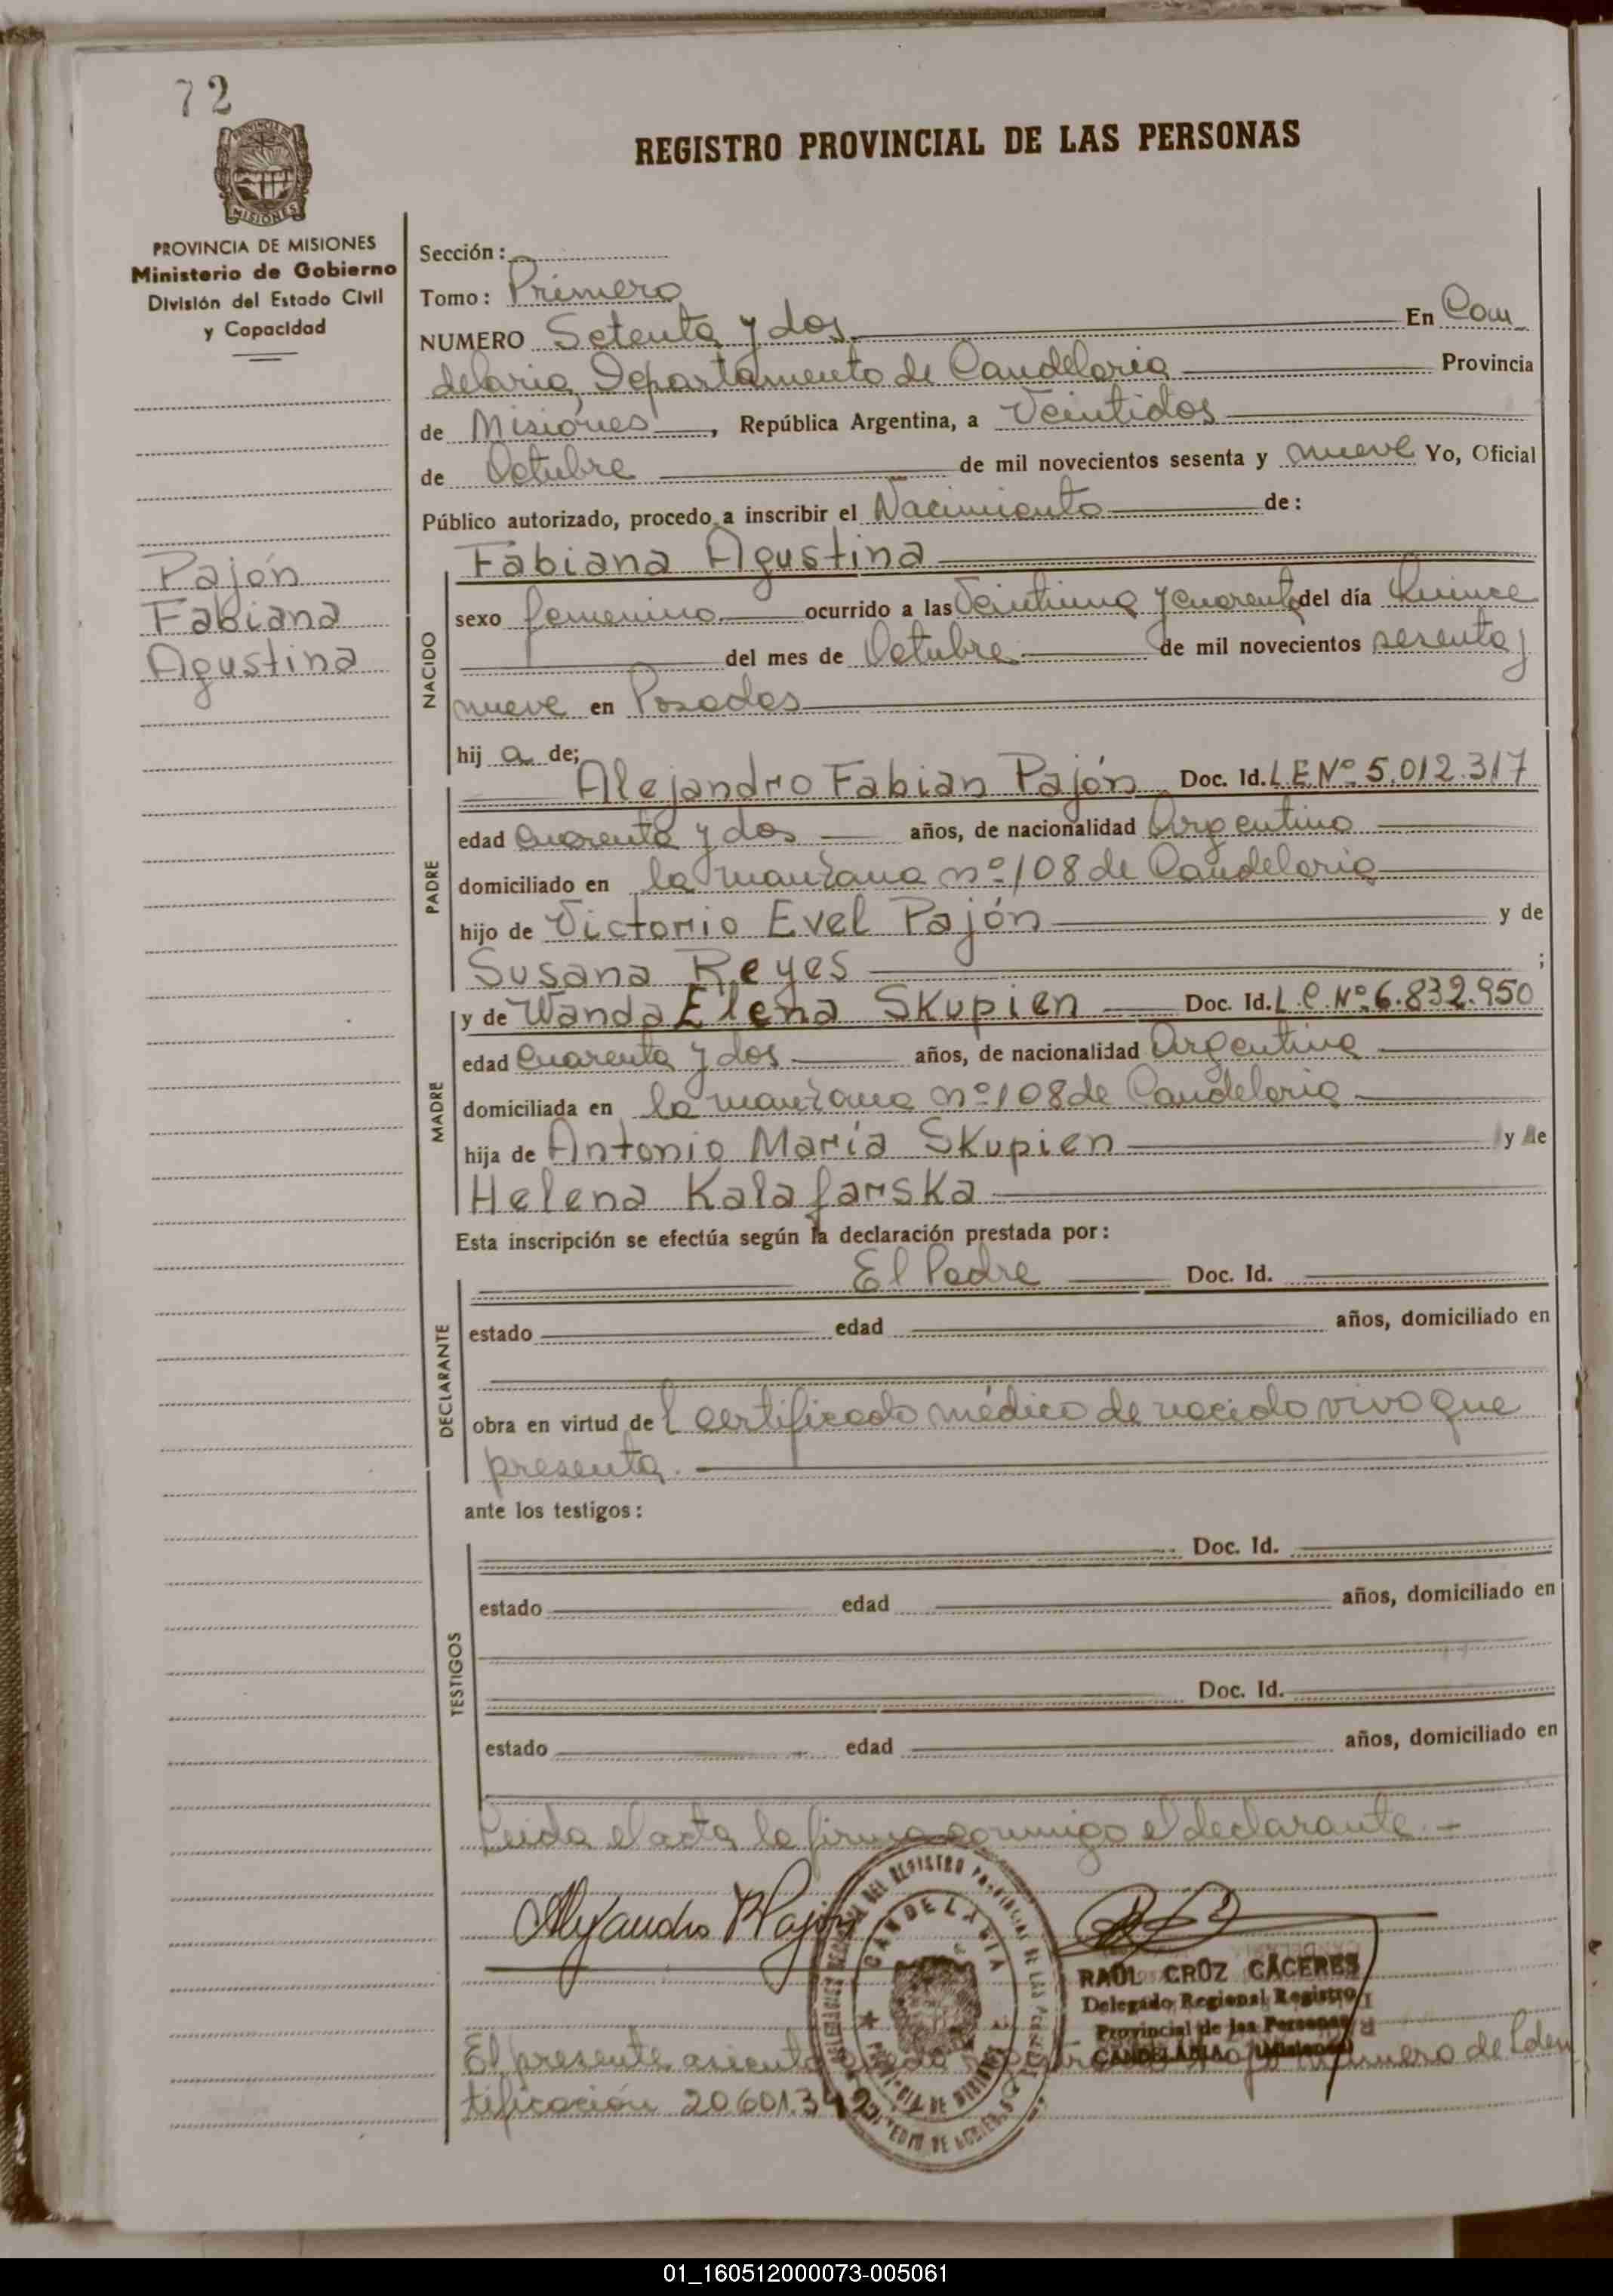 72
PROVINCIA DE
MISIONES
REGISTRO PROVINCIAL DE LAS PERSONAS
PROVINCIA DE MISIONES
Ministerio de Gobierno
División del Estado Civil
y Capacidad
Pajón
Fabiana
Agustina
Sección:
Tomo: Primero
NUMERO Setenta y dos En Can
delaria, Departamento de Candelaria Provincia
de Misiones, República Argentina, a Veintidos
de Octubre de mil novecientos sesenta y nueve Yo, Oficial
Público autorizado, procedo a inscribir el Nacimiento de:
Fabiana Agustina
NACIDO
sexo femenino ocurrido a las Veintiuna y cuarenta del día Quince
del mes de Octubre de mil novecientos sesenta y
nueve en Posadas
hij a de;
PADRE
Alejandro Fabian Pajón Doc. Id. L.E.Nº 5.012.317
edad Cuarenta y dos años, de nacionalidad Argentino
domiciliado en la manzana nº 108 de Candelaria
hijo de Victorio Evel Pajón y de
Susana Reyes ;
MADRE
y de Wanda Elena Skupien Doc. Id. L.C.Nº 6.832.950
edad Cuarenta y dos años, de nacionalidad Argentina
domiciliada en la manzana nº 108 de Candelaria
hija de Antonio María Skupien y de
Helena Kalafarska
Esta inscripción se efectúa según la declaración prestada por:
DECLARANTE
El Padre Doc. Id.
estado edad años, domiciliado en
obra en virtud de l certificado médico de nacido vivo que
presenta.
ante los testigos:
TESTIGOS
Doc. Id.
estado edad años, domiciliado en
Doc. Id.
estado edad años, domiciliado en
Leida el acta, la firma conmigo el declarante.-
Alejandro F Pajón
CANDELARIA
RAUL CRUZ CACERES
Delegado Regional Registro
Provincial de las Personas
CANDELARIA (Misiones)
El presente asiento número de Iden
tificación 20.601.342
01_160512000073-005061